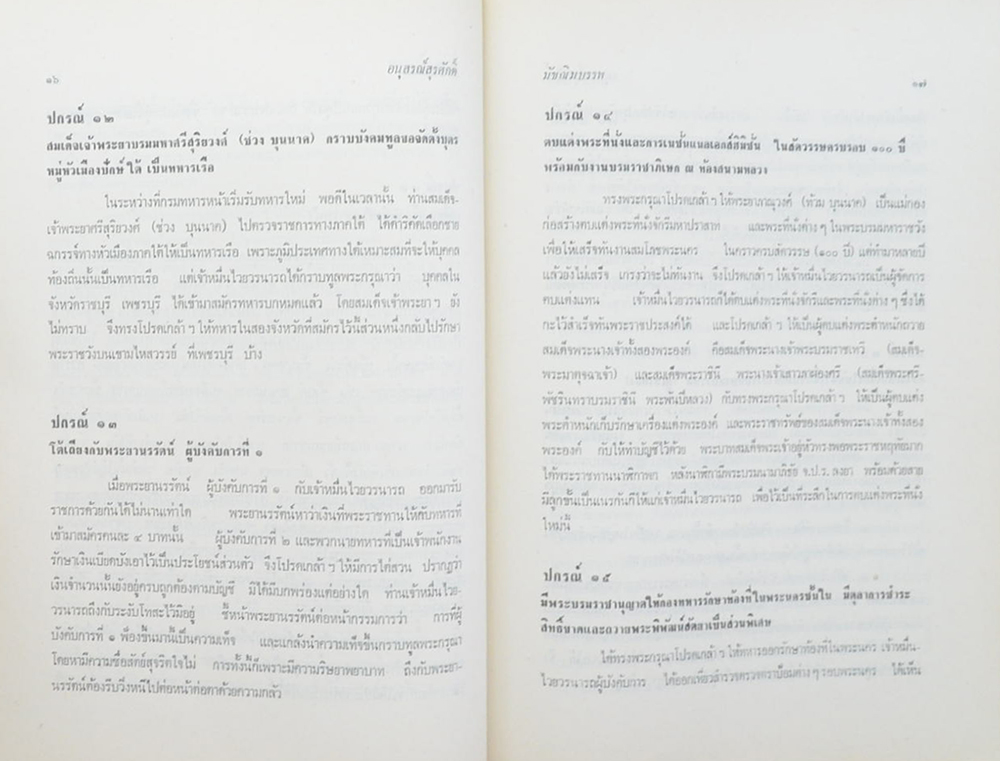 ๑๖
อนุสรณ์สุรศักดิ์
ปกรณ์ ๑๒
สมเด็จเจ้าพระยาบรมมหาศรีสุริยวงศ์ (ช่วง บุนนาค) กราบบังคมทูลขอจัดตั้งบุตร
หมู่หัวเมืองปักษ์ใต้ เป็นทหารเรือ
ในระหว่างที่กรมทหารหน้าเริ่มรับทหารใหม่ พอดีในเวลานั้น ท่านสมเด็จ-
เจ้าพระยาศรีสุริยวงศ์ (ช่วง บุนนาค) ไปตรวจราชการทางภาคใต้ ได้ดำริคัดเลือกชาย
ฉกรรจ์ทางหัวเมืองภาคใต้ให้เป็นทหารเรือ เพราะภูมิประเทศทางใต้เหมาะสมที่จะให้บุคคล
ท้องถิ่นนั้นเป็นทหารเรือ แต่เจ้าหมื่นไวยวรนารถได้กราบทูลพระกรุณาว่า บุคคลใน
จังหวัดราชบุรี เพชรบุรี ได้เข้ามาสมัครทหารบกหมดแล้ว โดยสมเด็จเจ้าพระยาฯ ยัง
ไม่ทราบ จึงทรงโปรดเกล้าฯ ให้ทหารในสองจังหวัดที่สมัครไว้นี้ส่วนหนึ่งกลับไปรักษา
พระราชวังบนเขามไหสวรรย์ ที่เพชรบุรี บ้าง
ปกรณ์ ๑๓
โต้เถียงกับพระยานรรัตน์ ผู้บังคับการที่ ๑
เมื่อพระยานรรัตน์ ผู้บังคับการที่ ๑ กับเจ้าหมื่นไวยวรนารถ ออกมารับ
ราชการด้วยกันได้ไม่นานเท่าใด พระยานรรัตน์หาว่าเงินที่พระราชทานให้กับทหารที่
เข้ามาสมัครคนละ ๔ บาทนั้น ผู้บังคับการที่ ๒ และพวกนายทหารที่เป็นเจ้าพนักงาน
รักษาเงินเบียดบังเอาไว้เป็นประโยชน์ส่วนตัว จึงโปรดเกล้าฯ ให้มีการไต่สวน ปรากฏว่า
เงินจำนวนนั้นยังอยู่ครบถูกต้องตามบัญชี มิได้มีบกพร่องแต่อย่างใด ท่านเจ้าหมื่นไวย-
วรนารถถึงกับระงับโทสะไว้มิอยู่ ชี้หน้าพระยานรรัตน์ต่อหน้ากรรมการว่า การที่ผู้
บังคับการที่ ๑ ฟ้องขึ้นมานี้เป็นความเท็จ และแกล้งนำความเท็จขึ้นกราบทูลพระกรุณา
โดยหามีความซื่อสัตย์สุจริตใจไม่ การทั้งนี้ก็เพราะมีความริษยาพยาบาท ถึงกับพระยา-
นรรัตน์ต้องรีบวิ่งหนีไปต่อหน้าต่อตาด้วยความกลัว
มัชฌิมบรรพ
๑๗
ปกรณ์ ๑๔
ตบแต่งพระที่นั่งและการเนชั่นแนลเอกส์ฮิบิชั่น ในสัตวรรษครบรอบ ๑๐๐ ปี
พร้อมกับงานบรมราชาภิเษก ณ ท้องสนามหลวง
ทรงพระกรุณาโปรดเกล้าฯ ให้พระยาภาณุวงศ์ (ท้วม บุนนาค) เป็นแม่กอง
ก่อสร้างตบแต่งพระที่นั่งจักรีมหาปราสาท และพระที่นั่งต่างๆ ในพระบรมมหาราชวัง
เพื่อให้เสร็จทันงานสมโภชพระนคร ในคราวครบสัตวรรษ (๑๐๐ ปี) แต่ทำมาหลายปี
แล้วยังไม่เสร็จ เกรงว่าจะไม่ทันงาน จึงโปรดเกล้าฯ ให้เจ้าหมื่นไวยวรนารถเป็นผู้จัดการ
ตบแต่งแทน เจ้าหมื่นไวยวรนารถก็ให้ตบแต่งพระที่นั่งจักรีและพระที่นั่งต่างๆ ซึ่งได้
กะไว้สำเร็จทันพระราชประสงค์ได้ และโปรดเกล้าฯ ให้เป็นผู้ตบแต่งพระตำหนักถวาย
สมเด็จพระนางเจ้าทั้งสองพระองค์ คือสมเด็จพระนางเจ้าพระบรมราชเทวี (สมเด็จ-
พระมาตุจฉาเจ้า) และสมเด็จพระราชินี พระนางเจ้าเสาวภาผ่องศรี (สมเด็จพระศรี-
พัชรินทราบรมราชินี พระพันปีหลวง) กับทรงพระกรุณาโปรดเกล้าฯ ให้เป็นผู้ตบแต่ง
พระตำหนักเก็บรักษาเครื่องแต่งพระองค์ และพระราชทรัพย์ของสมเด็จพระนางเจ้าทั้งสอง
พระองค์ กับให้ทำบัญชีไว้ด้วย พระบาทสมเด็จพระเจ้าอยู่หัวทรงพอพระราชหฤทัยมาก
ได้พระราชทานนาฬิกาพก หลังนาฬิกามีพระบรมนามาภิธัย จ.ป.ร. ลงยา พร้อมด้วยสาย
มีลูกชั้นเป็นเนรกันดีให้แก่เจ้าหมื่นไวยวรนารถ เพื่อไว้เป็นที่ระลึกในการตบแต่งพระที่นั่ง
ใหม่นี้
ปกรณ์ ๑๕
มีพระบรมราชานุญาตให้กองทหารรักษาท้องที่ในพระนครชั้นใน มีตุลาการชำระ
สิทธิ์ขาดและถวายพระพิพัฒน์สัตยาเป็นส่วนพิเศษ
ได้ทรงพระกรุณาโปรดเกล้าฯ ให้ทหารออกรักษาท้องที่ในพระนคร เจ้าหมื่น-
ไวยวรนารถผู้บังคับการ ได้ออกเที่ยวสำรวจตรวจตราป้อมต่างๆ รอบพระนคร ได้เห็น